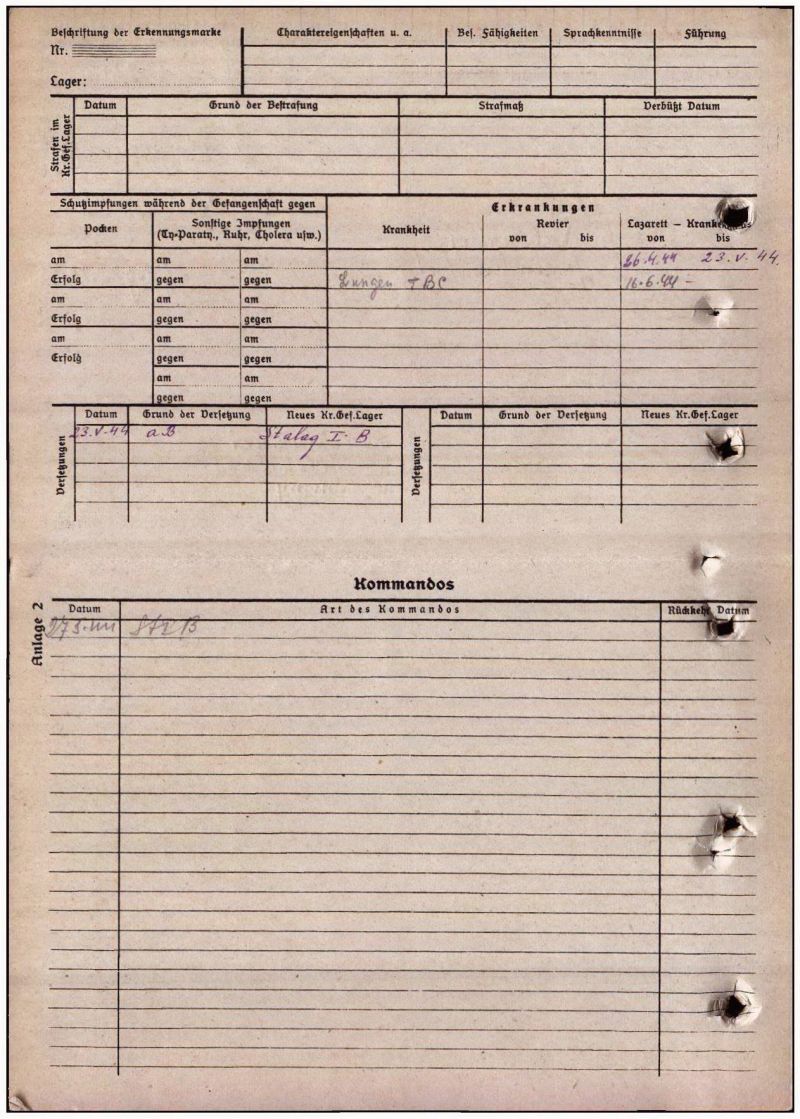 Beschriftung der Erkennungsmarke
Nr.
Lager:
Charaktereigenschaften u. a.
Bes. Fähigkeiten
Sprachkenntnisse
Führung
Strafen im Kr.Gef.Lager
Datum
Grund der Bestrafung
Strafmaß
Verbüßt Datum
Schutzimpfungen während der Gefangenschaft gegen
Pocken
Sonstige Impfungen
(Ty-Paraty., Ruhr, Cholera usw.)
Erkrankungen
Krankheit
Revier
von bis
Lazarett – Krankenhaus
von bis
am am am
26.4.44 23.V.44.
Erfolg gegen gegen
Lungen TBC 16.6.44 –
am am am
Erfolg gegen gegen
am am am
Erfolg gegen gegen
am am
gegen gegen
Versetzungen
Datum Grund der Versetzung Neues Kr.Gef.Lager
23.V.44 a.B Stalag I. B
Versetzungen
Datum Grund der Versetzung Neues Kr.Gef.Lager
Kommandos
Anlage 2
Datum Art des Kommandos Rückkehr Datum